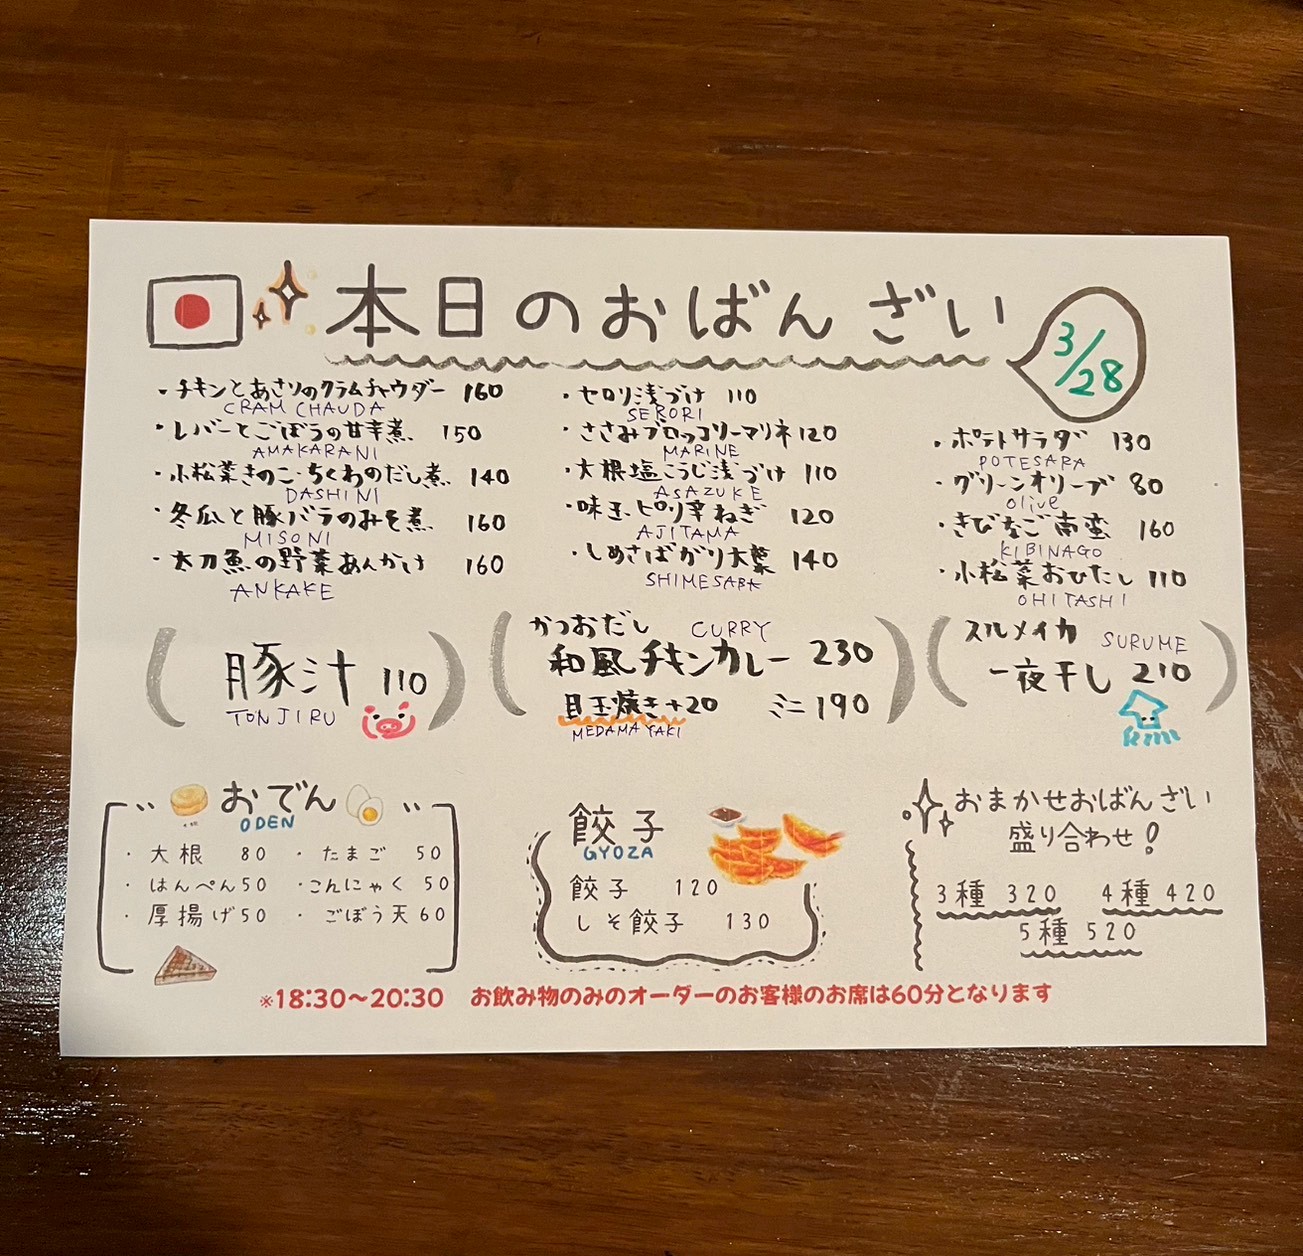 本日のおばんざい
3/28
・チキンとあさりのクラムチャウダー 160
CRAM CHAUDA
・レバーとごぼうの甘辛煮 150
AMAKARANI
・小松菜きのこ・ちくわのだし煮 140
DASHINI
・冬瓜と豚バラのみそ煮 160
MISONI
・太刀魚の野菜あんかけ 160
ANKAKE
・セロリ浅づけ 110
SERORI
・ささみブロッコリーマリネ 120
MARINE
・大根塩こうじ浅づけ 110
ASAZUKE
・味玉ピリ辛ねぎ 120
AJITAMA
・しめさばガリ大葉 140
SHIMESABA
・ポテトサラダ 130
POTESARA
・グリーンオリーブ 80
olive
・きびなご南蛮 160
KIBINAGO
・小松菜おひたし 110
OHITASHI
豚汁 110
TONJIRU
かつおだし CURRY
和風チキンカレー 230
目玉焼き+20 ミニ190
MEDAMAYAKI
スルメイカ SURUME
一夜干し 210
おでん
ODEN
・大根 80 ・たまご 50
・はんぺん50 ・こんにゃく 50
・厚揚げ50 ・ごぼう天60
餃子
GYOZA
餃子 120
しそ餃子 130
おまかせおばんざい
盛り合わせ!
3種 320 4種 420
5種 520
※18:30〜20:30 お飲み物のみのオーダーのお客様のお席は60分となります